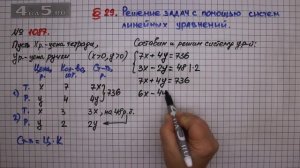 § 29. Решение задач с помощью систем
линейных уравнений.
№ 1087.
Пусть x р-цена тетради,
y р-цена ручки (x>0, y>0)
Цена, Кол. Ст-ть,
1) Т. x 7 7x
Р. y 4 4y } 736
2) Т. x 3 3x, на 48 р. >
Р. y 2 2y
Ст = Ц · К
Составим и решим систему ур-й:
7x + 4y = 736
3x - 2y = 48 | · 2
7x + 4y = 736
6x - 4y